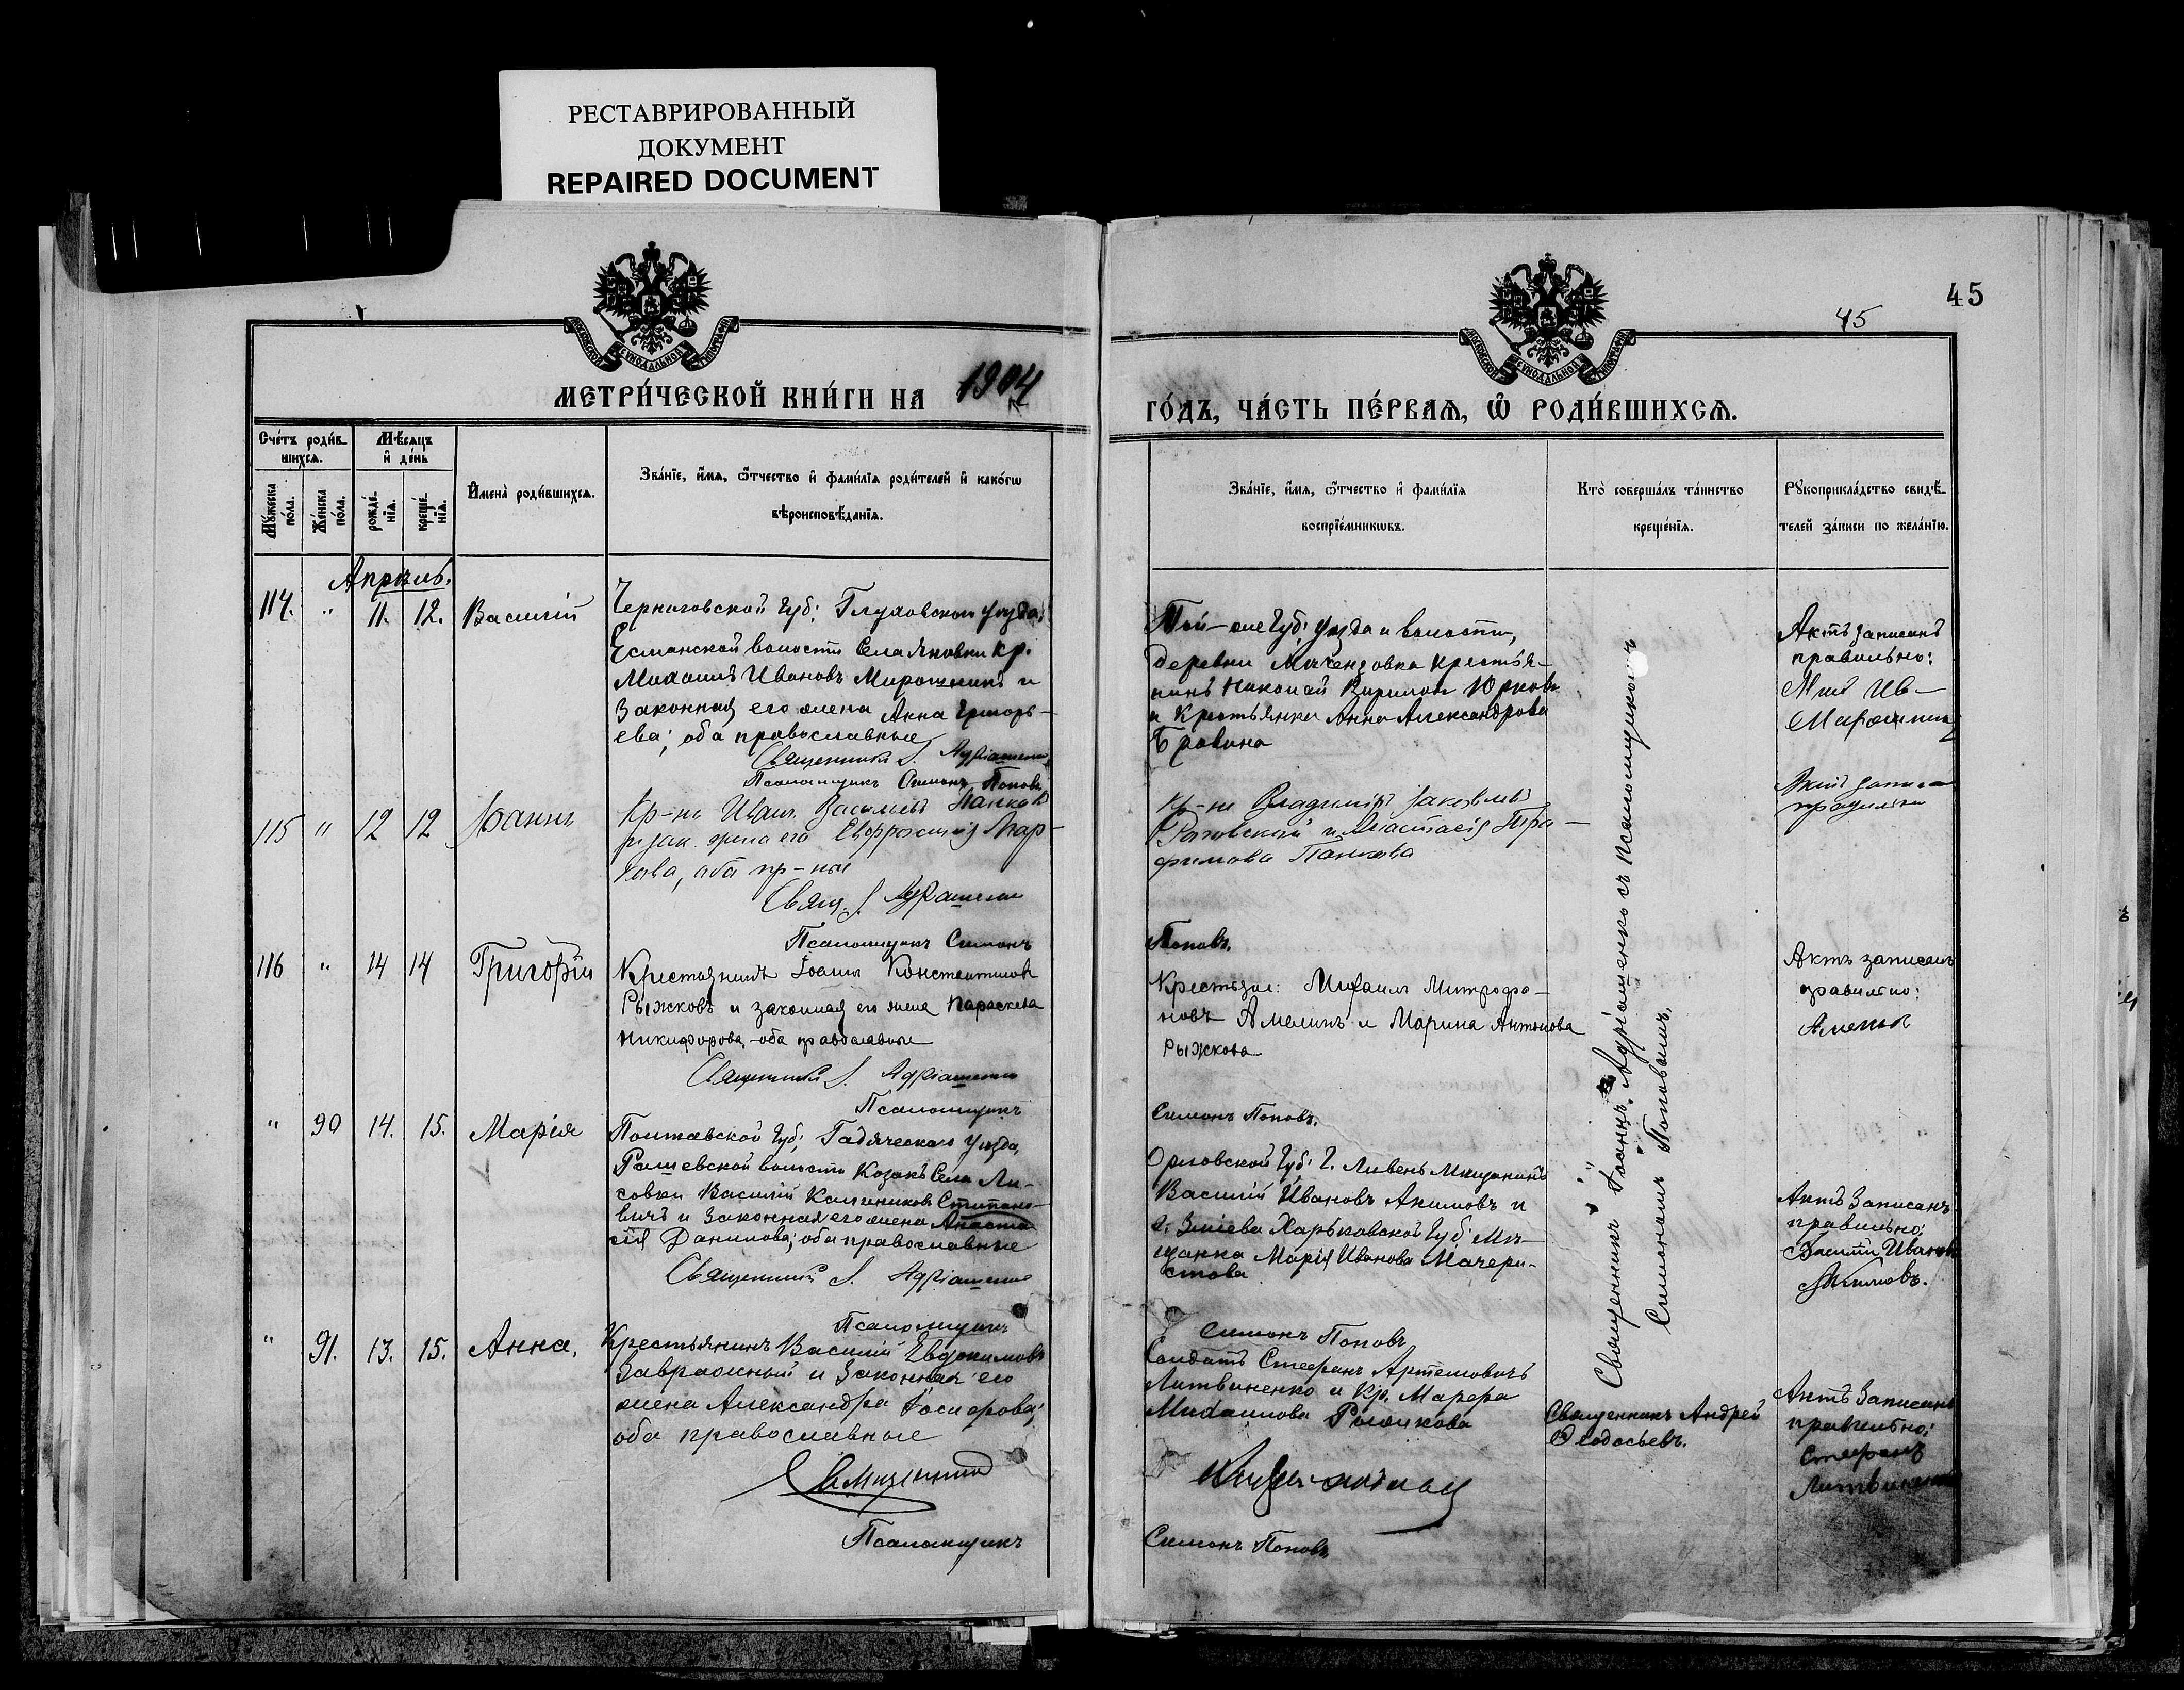 РЕСТАВРИРОВАННЫЙ
ДОКУМЕНТ
REPAIRED DOCUMENT
45
45
МОСКОВСКОЙ СѴНОДАЛЬНОЙ ТИПОГРАФІИ
МОСКОВСКОЙ СѴНОДАЛЬНОЙ ТИПОГРАФІИ
МЕТРИ́ЧЕСКОЙ КНИ́ГИ НА 1904
ГО́ДЪ, ЧА́СТЬ ПЕ́РВАЯ, Ѡ҆ РОДИ́ВШИХСЯ.
Сче́тъ роди́в-
шихся.
Мꙋ́жеска
по́ла.
Же́нска
по́ла.
Мѣ́сяцъ
и҆ де́нь
рожде́-
нїя.
креще́-
нїя.
И҆мена̀ роди́вшихся.
Зва́нїе, и҆́мя, ѻ҆́тчество и҆ фами́лїя роди́телей и҆ како́гѡ
вѣроисповѣ́данїя.
Зва́нїе, и҆́мя, ѻ҆́тчество и҆ фами́лїя
воспрїе́мникѡвъ.
Кто̀ соверша́лъ та́инство
креще́нїя.
Рꙋкоприкла́дство свидѣ́-
телей за́писи по жела́нїю.
Апрѣль.
114. " 11. 12. Василій
Черниговской губ; Глуховского уѣзда;
Есманской волости Села Яновки кр.
Михаилъ Ивановъ Мирошникъ и
Законная его жена Анна Григорь-
ева; оба православные
Священникъ І. Адріашенко
Псаломщикъ Симонъ Поповъ
Той-же губ; уѣзда и волости,
Деревни крестья-
нинъ Николай Юрковъ
и Крестьянка Анна Александрова
Бравина
Актъ записанъ
правильно:
Мих Ив-
115 " 12 12 Іоаннъ
Кр-нъ Иванъ Васильевъ Панковъ
и зак. жена его Евфросинія Кар-
пова, оба пр-ные
Свящ. І. Адріашенко
Псаломщикъ Симонъ
Поповъ.
Кр-не Владиміръ Яковлевъ
и Анастасія Тро-
фимова Панкова
Актъ записа
правильно
116 " 14 14 Григорій
Крестьянинъ Іоаннъ Константиновъ
Рыжковъ и законная его жена Параскева
Никифорова, оба православные
Священникъ І. Адріашенко
Псаломщикъ
Симонъ Поповъ.
Крестьяне: Михаилъ Митрофа-
новъ Амелинъ и Марина Антонова
Рыжкова
Актъ записанъ
правильно:
" 90 14. 15. Марія
Полтавской губ; Гадяческаго уѣзда,
Рашевской волости Козакъ Села Ли-
совки Василій Калиниковъ Степано-
вичъ и Законная его жена Анаста
сія Данилова; оба православные
Священникъ І. Адріашенко
Псаломщикъ
Симонъ Поповъ
Орловской губ: г. Ливенъ Мѣщанинъ
Василій Ивановъ Акимовъ и
г. Зміева Харьковской губ: Мѣ-
щанка Марія Иванова Мачери-
стова
Актъ Записанъ
правильно;
Василій Ивановъ
Акимовъ.
" 91. 13. 15. Анна,
Крестьянинъ Василій Евдокимовъ
Завражный и Законная его
жена Александра Іосифова;
оба православные
Псаломщикъ
Симонъ Поповъ
Солдатъ Стефанъ Артемовичъ
Литвиненко и Кр. Марфа
Михаилова
Священникъ Андрей
Ѳеодосьевъ.
Актъ Записанъ
правильно;
Стефанъ
Литвиненко
Священникъ Іоаннъ Адріашенко съ псаломщикомъ
Симономъ Поповымъ.